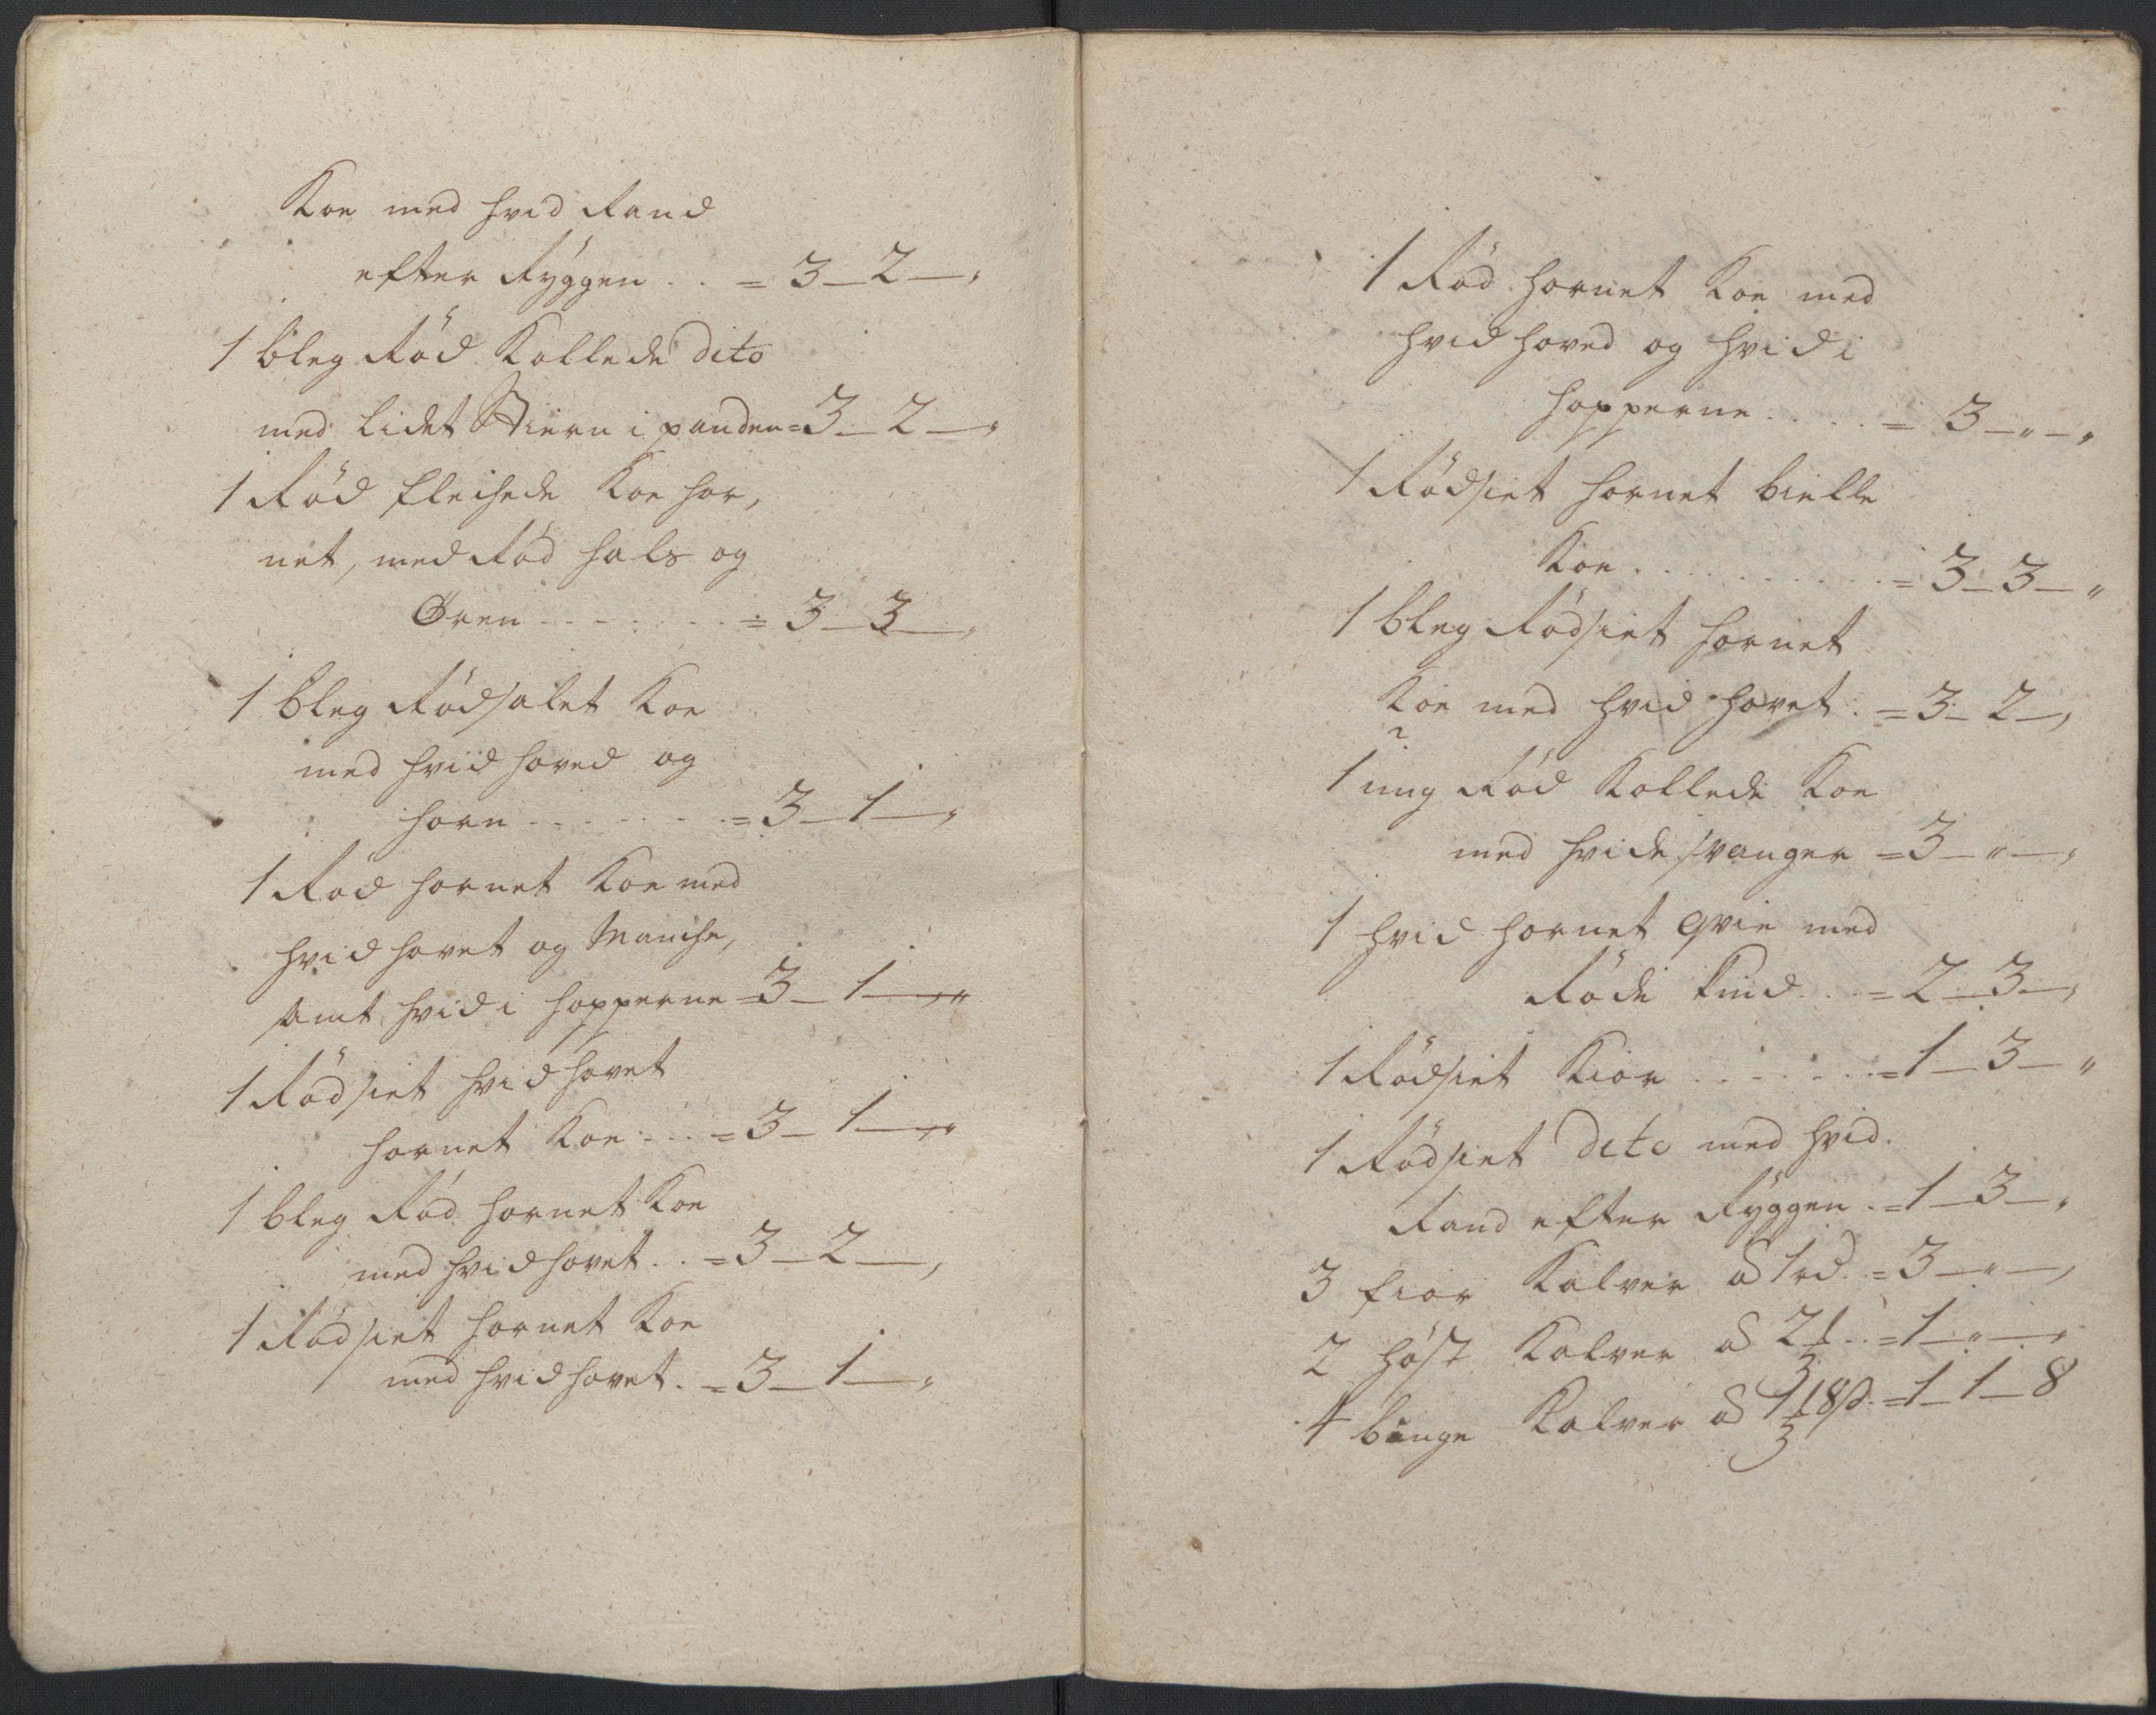 Koe med hvid Rand
efter Ryggen . . = 3 — 2 — "
1 bleg Rød Kollede dito
med lidet Stiern i panden = 3 — 2 — "
1 Rød fleisede Koe hor,
net, med Rød hals og
Øren - - - - - - = 3 — 3 — "
1 bleg Rødsalet Koe
med hvid hoved og
horn - - - - - - = 3 — 1 — "
1 Rød hornet Koe med
hvid hovet og Manihe,
samt hvid i hopperne = 3 — 1 — "
1 Rødsiet hvid hovet
hornet Koe . . . = 3 — 1 — "
1 bleg Rød hornet Koe
med hvid hovet . . = 3 — 2 — "
1 Rødsiet hornet Koe
med hvid hovet . = 3 — 1 — "
1 Rød hornet Koe med
hvid hoved og hvid i
hopperne . . . . = 3 — " — "
1 Rødsiet hornet bielle
Koe . . . . . . . . = 3 — 3 — "
1 bleg Rødsiet hornet
Koe med hvid hovet . = 3 — 2 — "
1 ung Rød Kollede Koe
med hvide svanger = 3 — " — "
1 hvid hornet qvie med
Røde kind . . = 2 — 3 — "
1 Rødsiet Kior . . . . . = 1 — 3 — "
1 Rødsiet dito med hvid
Rand efter Ryggen . = 1 — 3 — "
3 fior Kalver a 1 rd. = 3 — " — "
2 høst Kalver a 2 ƺ . . = 1 — " — "
4 binge Kalver a 1 ƺ 8 ß. = 1 — 1 — 8